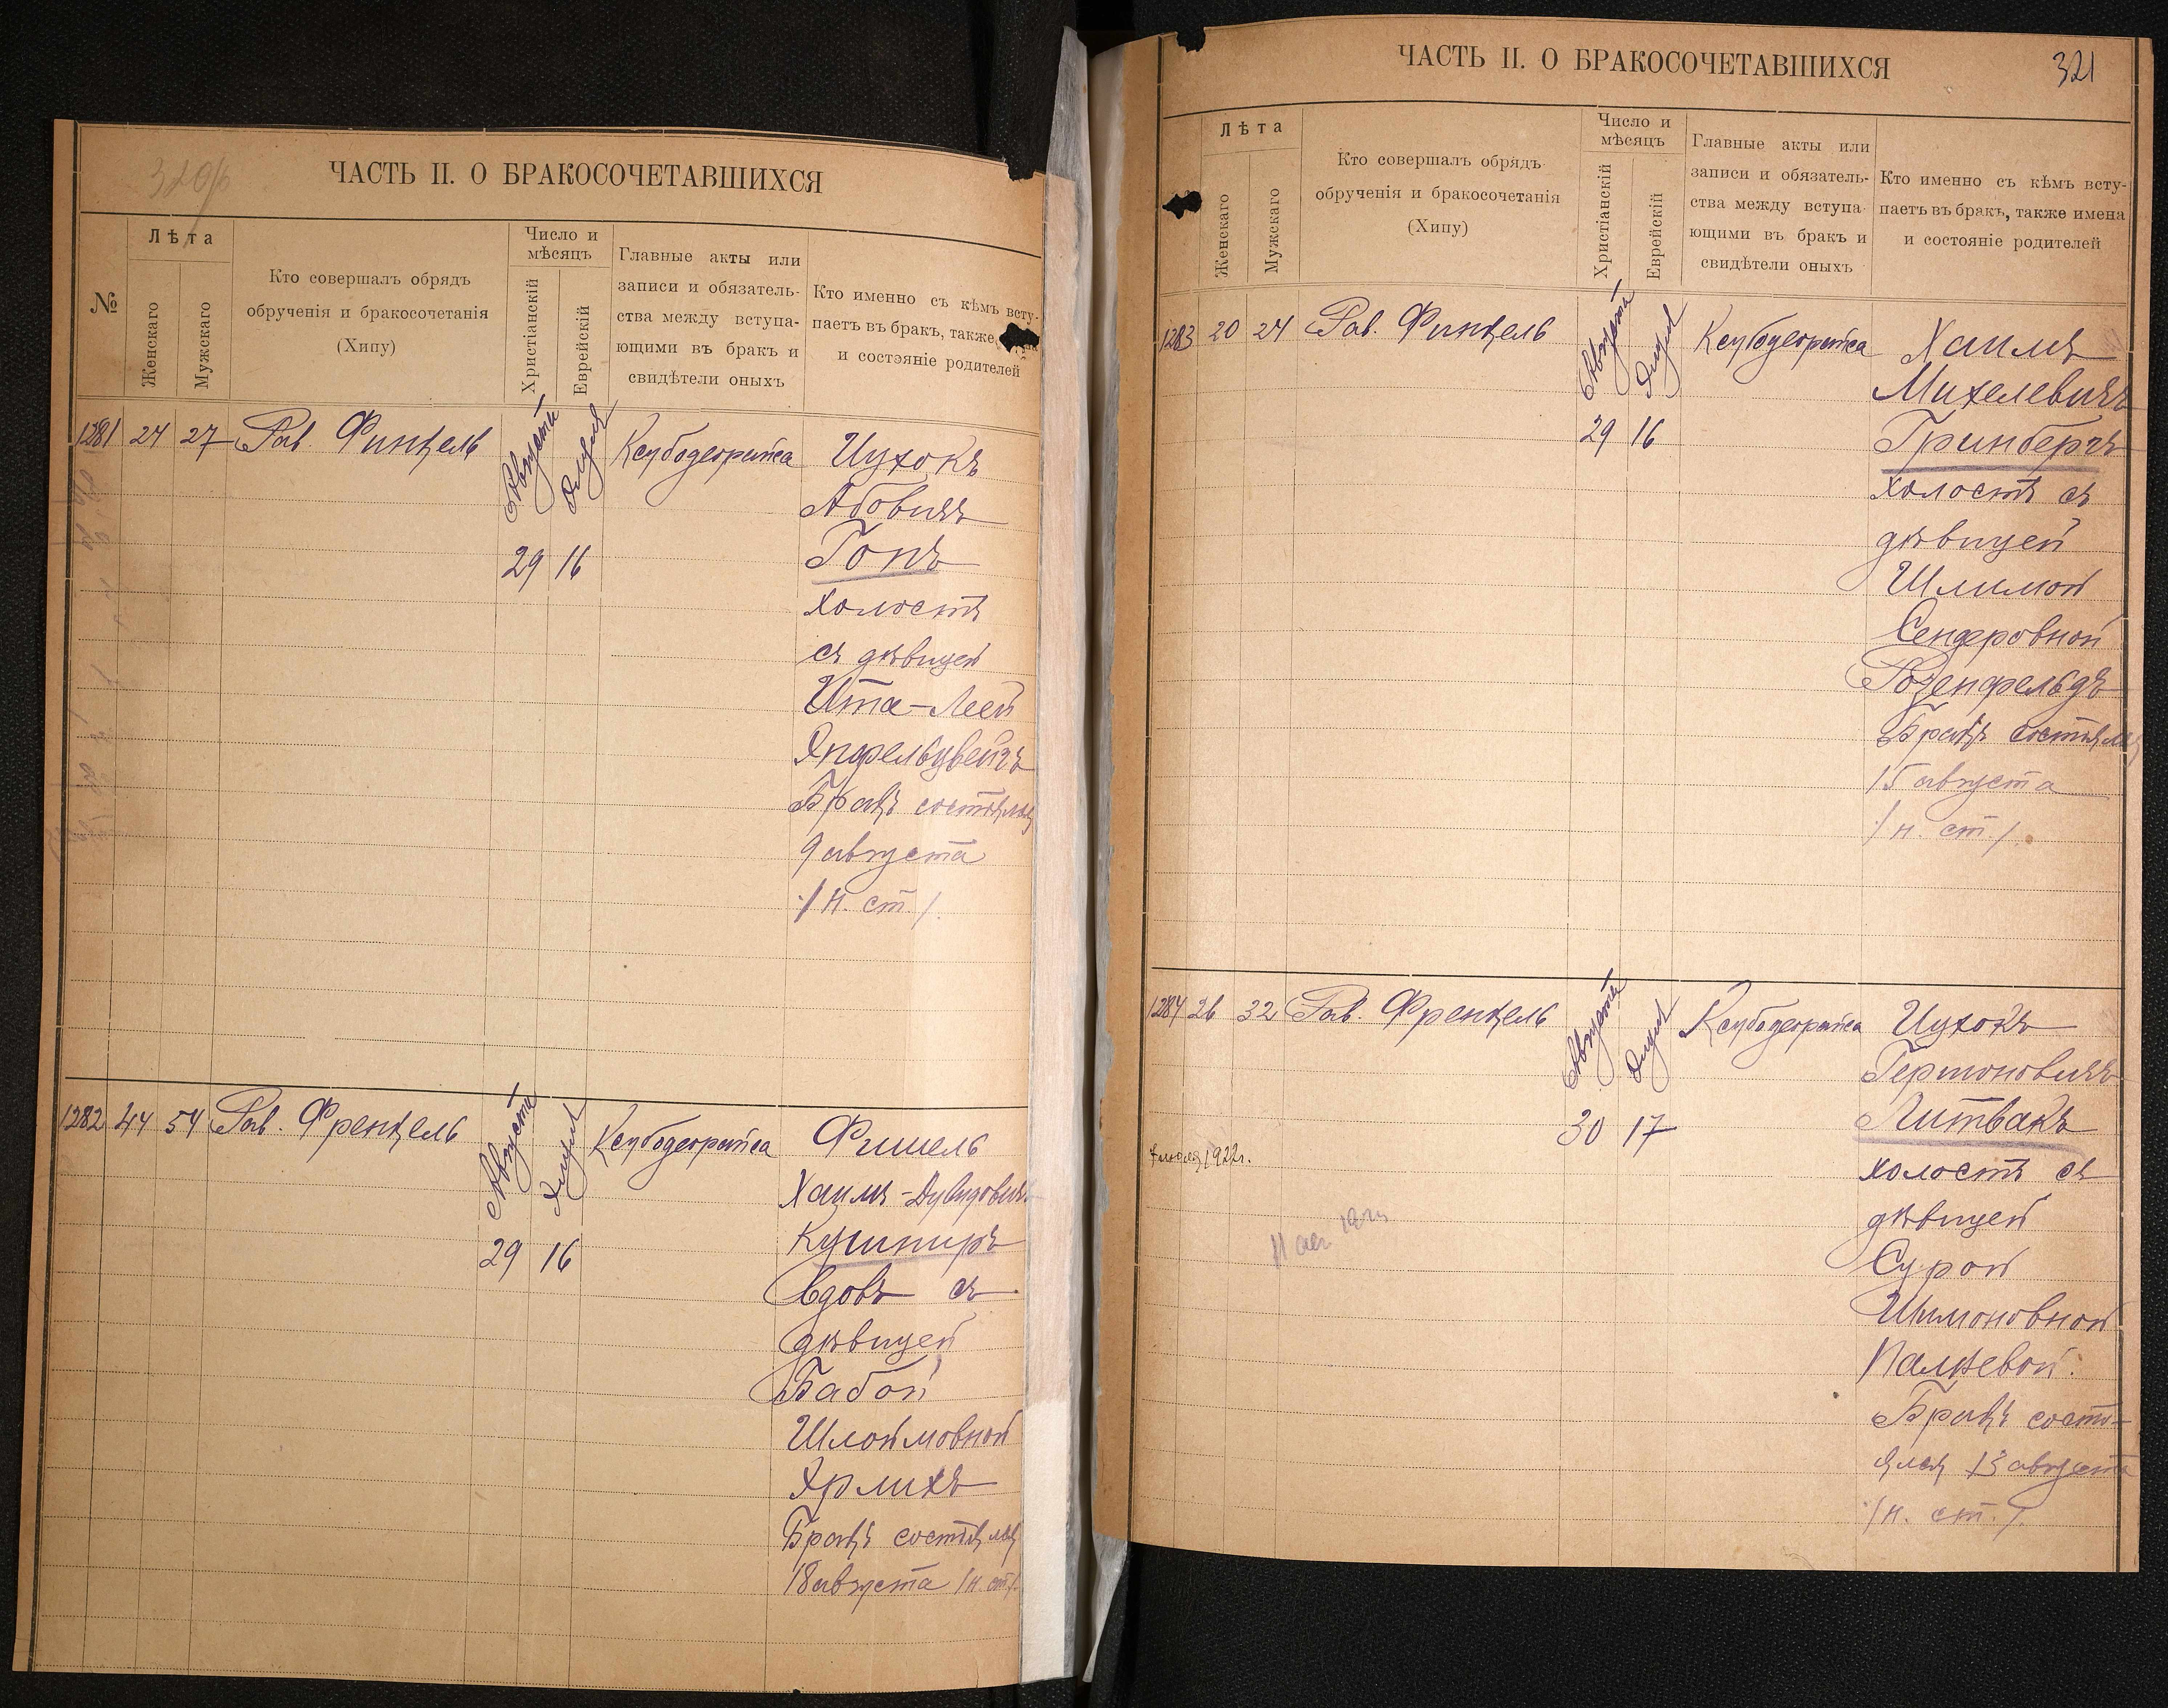 320/б
ЧАСТЬ II. О БРАКОСОЧЕТАВШИХСЯ
№
Лѣта
Женскаго
Мужскаго
Кто совершалъ обрядъ
обрученія и бракосочетанія
(Хипу)
Число и
мѣсяцъ
Христіанскій
Еврейскій
Главные акты или
записи и обязатель-
ства между вступа-
ющими въ бракъ и
свидѣтели оныхъ
Кто именно съ кѣмъ всту-
паетъ въ бракъ, также
и состояніе родителей
1281 24 27 Рав. Финкель Августа Элуля Ксубодеорайса Ицхокъ
Абовичъ
29 16 Гопъ
холостъ
съ дѣвицей
Ита-Леей
Япфельцвейгъ
Бракъ состоялся
9 августа
/н. ст./.
1282 44 54 Рав. Френкель Августа Элуля Ксубодеорайса Фишель
Хаимъ-Дувидовичъ
29 16 Кушниръ
вдовъ съ
дѣвицей
Бабой
Шлоймовной
Эрлихъ
Бракъ состоялся
18 августа /н. ст./.
ЧАСТЬ II. О БРАКОСОЧЕТАВШИХСЯ
321
Лѣта
Женскаго
Мужскаго
Кто совершалъ обрядъ
обрученія и бракосочетанія
(Хипу)
Число и
мѣсяцъ
Христіанскій
Еврейскій
Главные акты или
записи и обязатель-
ства между вступа-
ющими въ бракъ и
свидѣтели оныхъ
Кто именно съ кѣмъ всту-
паетъ въ бракъ, также имена
и состояніе родителей
1283 20 24 Рав. Финкель Августа Элуля Ксубодеорайса Хаимъ
Михелевичъ
29 16 Гринбергъ
холостъ съ
дѣвицей
Шлимой
Сендеровной
Розенфельдъ
Бракъ состоялся
15 августа
/н. ст./.
1284 26 32 Рав. Френкель Августа Элуля Ксубодеорайса Ицхокъ
Гершоновичъ
30 17 Литвакъ
1922г.
холостъ съ
дѣвицей
Сурой
Шимоновной
Палѣевой.
Бракъ состо-
ялся 13 августа
/н. ст./.